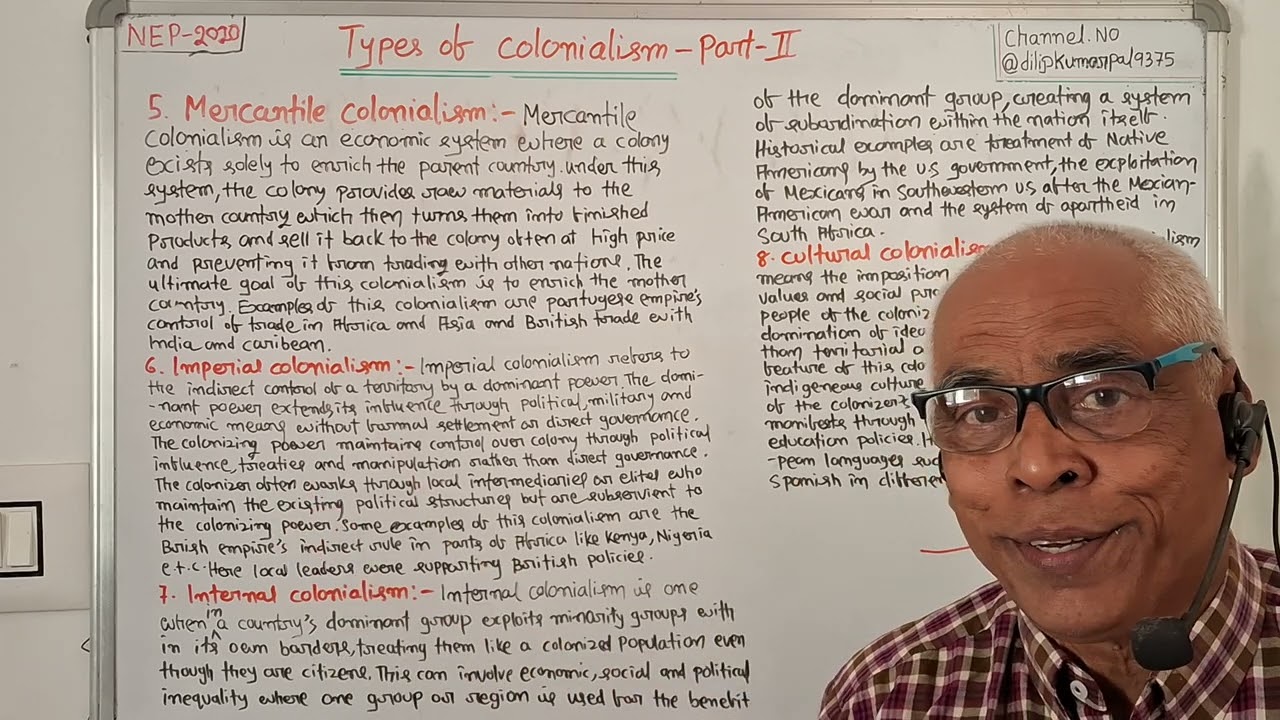 NEP-2020
Types of colonialism-Part-II
Channel.NO
@dilipkumarpal9375
5. Mercantile colonialism:- Mercantile
colonialism is an economic system where a colony
exists solely to enrich the parent country. under this
system, the colony provides raw materials to the
mother country which then turns them into finished
products and sell it back to the colony often at high price
and preventing it from trading with other nations. The
ultimate goal of this colonialism is to enrich the mother
country. Examples of this colonialism are partugese empire's
control of trade in Africa and Asia and British trade with
India and caribean.
6. Imperial colonialism:- Imperial colonialism refers to
the indirect control of a territory by a dominant power. The domi-
-nant power extends its influence through political, military and
economic means without formal settlement or direct governance.
The colonizing power maintains control over colony through political
influence, treaties and manipulation rather than direct governance.
The colonizer often works through local intermediaries or elites who
maintain the existing political structures but are subservient to
the colonizing power. Some examples of this colonialism are the
Brish empire's indirect rule in parts of Africa like Kenya, Nigeria
e.t.c. Here local leaders were supporting British policies.
7. Internal colonialism:- Internal colonialism is one
when in a country's dominant group exploits minority groups with
in its own borders, treating them like a colonized population even
though they are citizens. This can involve economic, social and political
inequality where one group or region is used for the benefit
of the dominant group, creating a system
of subordination within the nation itself.
Historical examples are treatment of Native
Americans by the US government, the exploitation
of Mexicans in Southwestern US after the Mexian-
American war and the system of apartheid in
South Africa.
8. cultural colonialis
means the imposition
values and social
people of the coloniz
domination of ideo
than territorial
feature of this colo
indigeneous culture
of the colonizer
manifests through
education policies.
-pean languages suc
Spanish in different